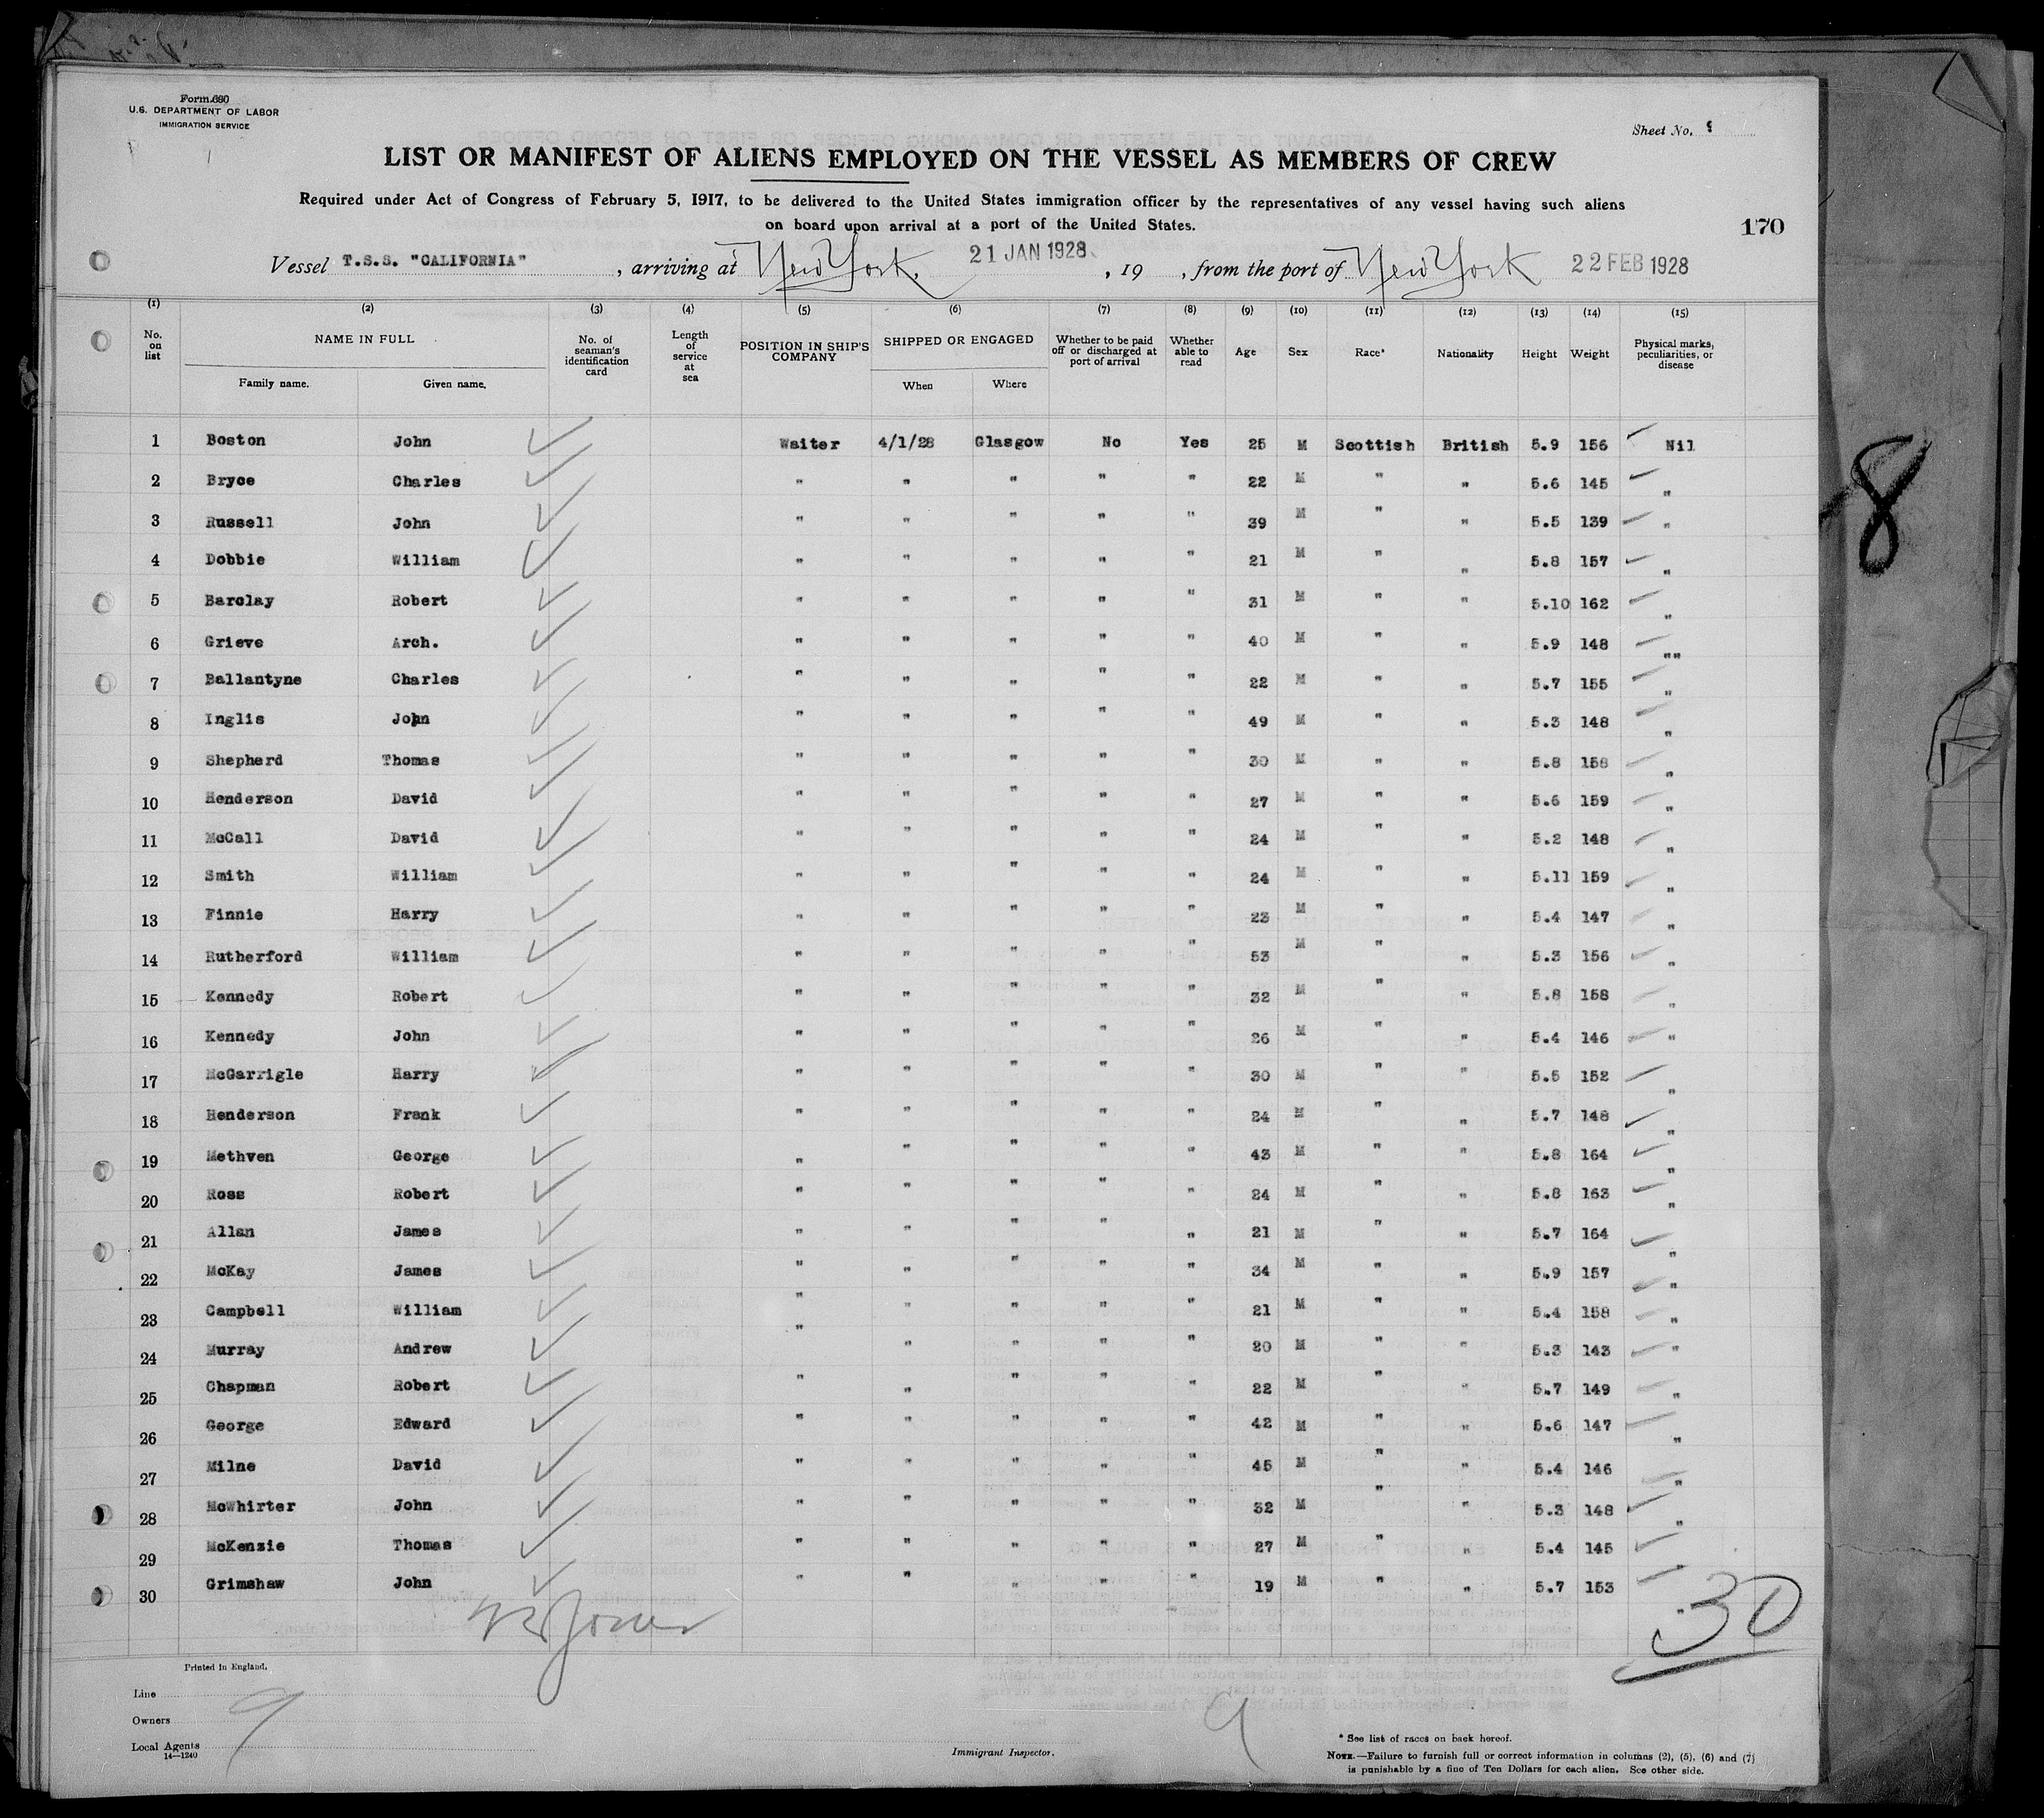 Form 680
U.S. DEPARTMENT OF LABOR
IMMIGRATION SERVICE
Sheet No.
LIST OR MANIFEST OF ALIENS EMPLOYED ON THE VESSEL AS MEMBERS OF CREW
Required under Act of Congress of February 5, 1917, to be delivered to the United States immigration officer by the representatives of any vessel having such aliens
on board upon arrival at a port of the United States.
170
Vessel T.S.S. "CALIFORNIA", arriving at New York, 21 JAN 1928, 19 , from the port of New York 22 FEB 1928
(1) (2) (3) (4) (5) (6) (7) (8) (9) (10) (11) (12) (13) (14) (15)
No. on list NAME IN FULL Family name. Given name. No. of seaman's identification card Length of service at sea POSITION IN SHIP'S COMPANY SHIPPED OR ENGAGED When Where Whether to be paid off or discharged at port of arrival Whether able to read Age Sex Race* Nationality Height Weight Physical marks, peculiarities, or disease
1 Boston John Waiter 4/1/28 Glasgow No Yes 25 M Scottish British 5.9 156 Nil
2 Bryce Charles " " " " " 22 M " " 5.6 145 "
3 Russell John " " " " " 39 M " " 5.5 139 "
4 Dobbie William " " " " " 21 M " " 5.8 157 "
5 Barclay Robert " " " " " 31 M " " 5.10 162 "
6 Grieve Arch. " " " " " 40 M " " 5.9 148 ""
7 Ballantyne Charles " " " " " 22 M " " 5.7 155 "
8 Inglis John " " " " " 49 M " " 5.3 148 "
9 Shepherd Thomas " " " " " 30 M " " 5.8 158 "
10 Henderson David " " " " " 27 M " " 5.6 159 "
11 McCall David " " " " " 24 M " " 5.2 148 "
12 Smith William " " " " " 24 M " " 5.11 159 "
13 Finnie Harry " " " " " 23 M " " 5.4 147 "
14 Rutherford William " " " " " 53 M " " 5.3 156 "
15 Kennedy Robert " " " " " 32 M " " 5.8 158 "
16 Kennedy John " " " " " 26 M " " 5.4 146 "
17 McGarrigle Harry " " " " " 30 M " " 5.5 152 "
18 Henderson Frank " " " " " 24 M " " 5.7 148 "
19 Methven George " " " " " 43 M " " 5.8 164 "
20 Ross Robert " " " " " 24 M " " 5.8 163 "
21 Allan James " " " " " 21 M " " 5.7 164 "
22 McKay James " " " " " 34 M " " 5.9 157 "
23 Campbell William " " " " " 21 M " " 5.4 158 "
24 Murray Andrew " " " " " 20 M " " 5.3 143 "
25 Chapman Robert " " " " " 22 M " " 5.7 149 "
26 George Edward " " " " " 42 M " " 5.6 147 "
27 Milne David " " " " " 45 M " " 5.4 146 "
28 McWhirter John " " " " " 32 M " " 5.3 148 "
29 McKenzie Thomas " " " " " 27 M " " 5.4 145 "
30 Grimshaw John " " " " " 19 M " " 5.7 153 "
30
8
Printed in England.
Line
Owners
9
9
Local Agents
14—1240
Immigrant Inspector.
* See list of races on back hereof.
NOTE.—Failure to furnish full or correct information in columns (2), (5), (6) and (7)
is punishable by a fine of Ten Dollars for each alien. See other side.